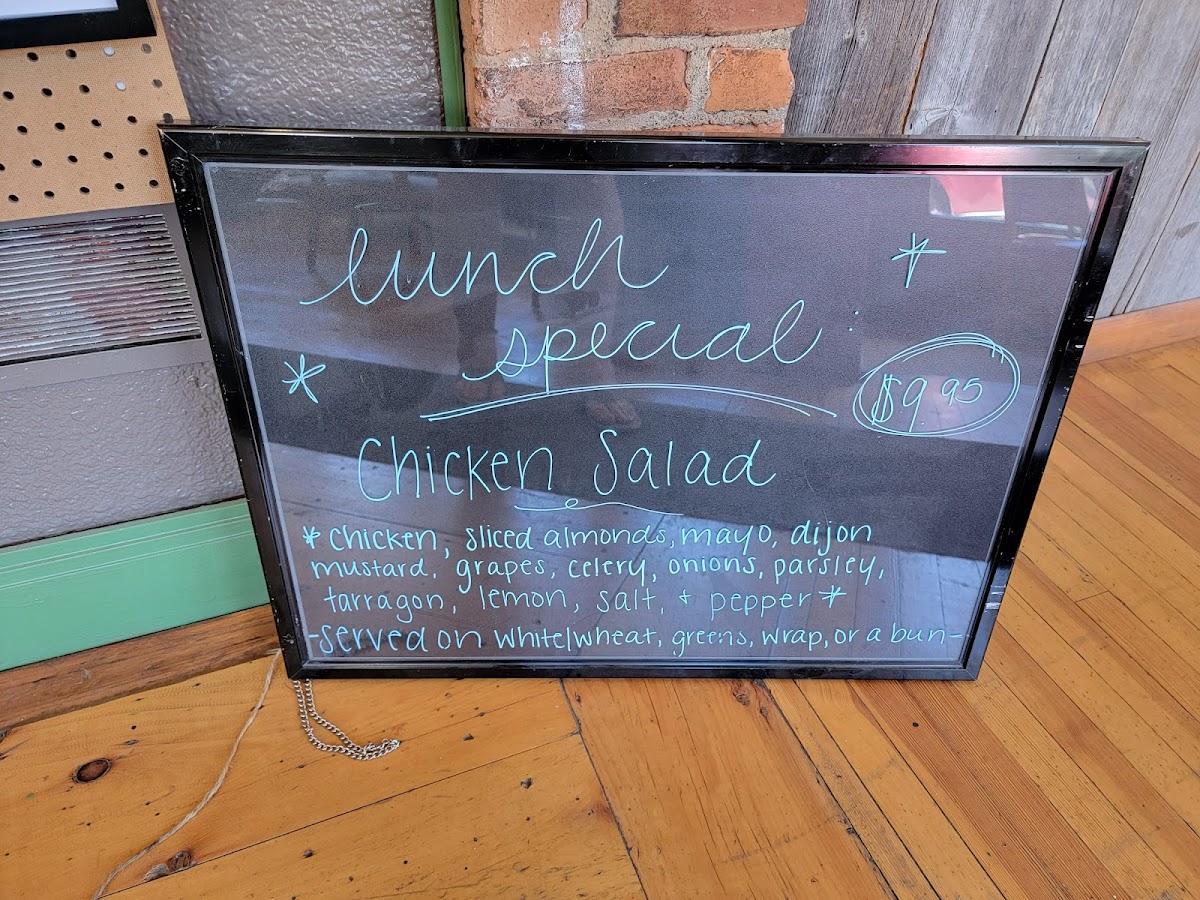 lunch
special
$9.95
Chicken Salad
* chicken, sliced almonds, mayo, dijon
mustard, grapes, celery, onions, parsley,
tarragon, lemon, salt, + pepper *
-served on white/wheat, greens, wrap, or a bun-